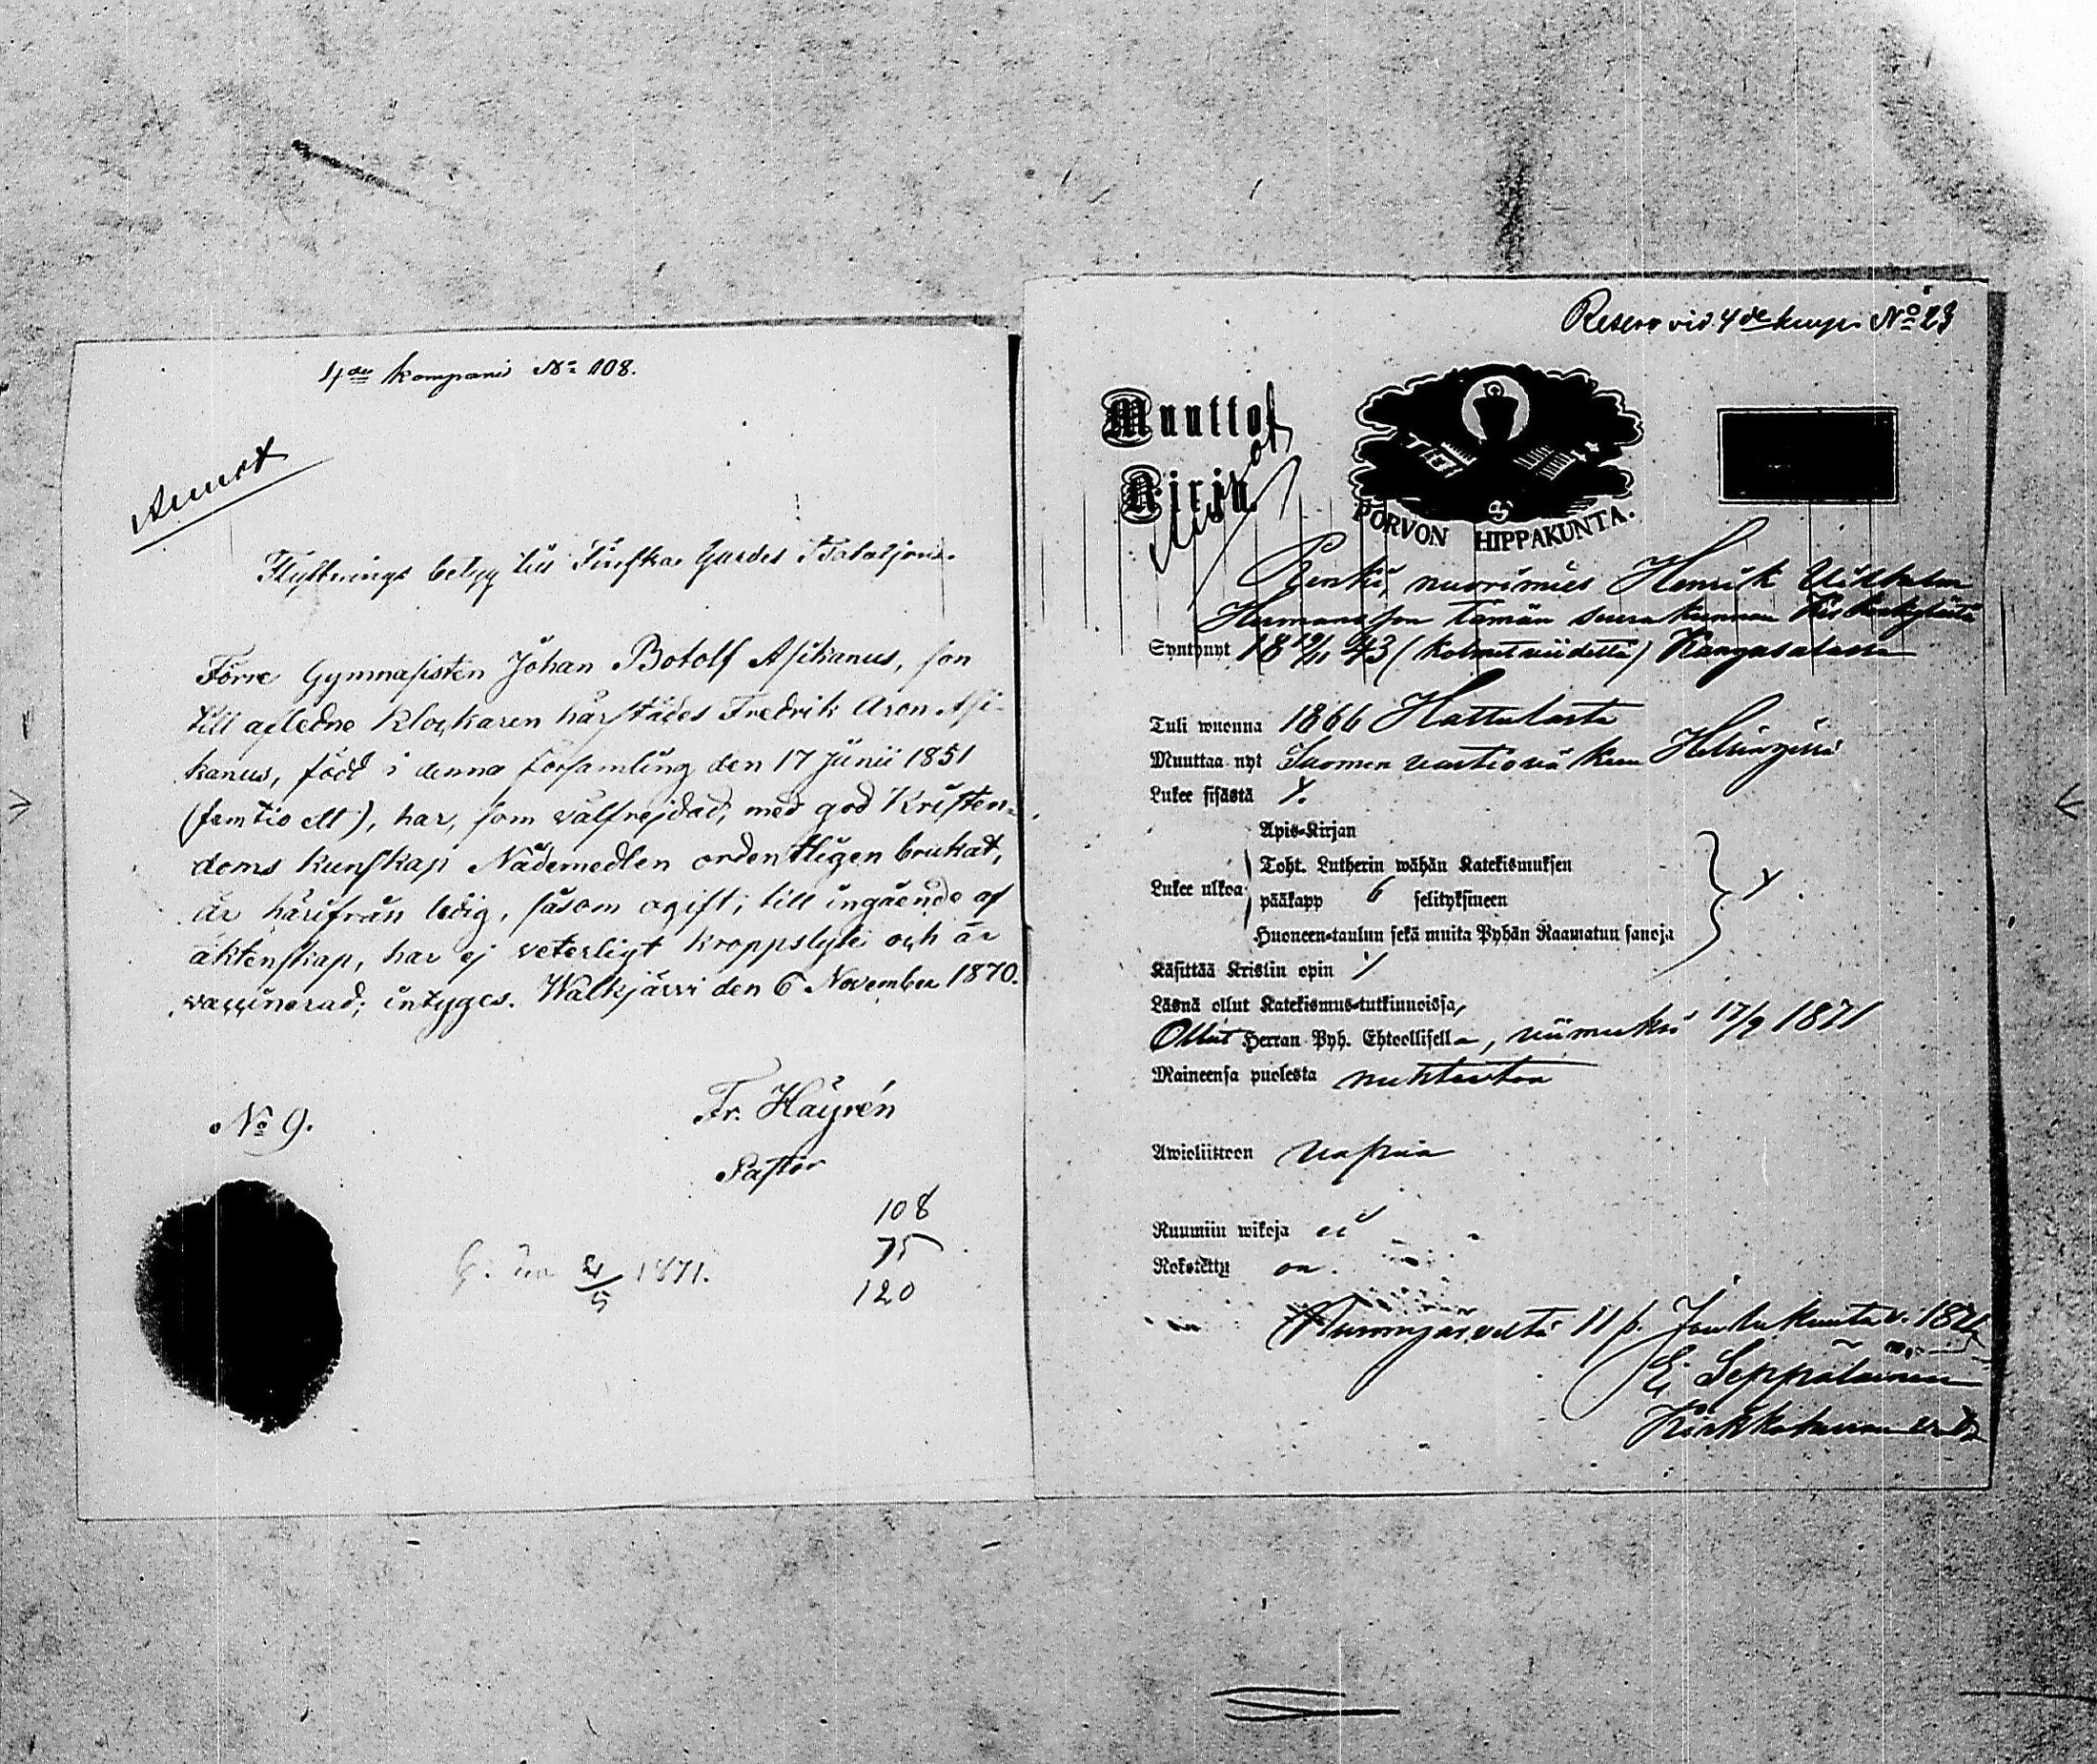 4de kompanis No 108.
Flyttnings betyg till Finska Gardes Bataljon.
Förre Gymnasisten Johan Botolf Asikanus, son
till afledne Klockaren härstädes Fredrik Aron Asi-
kanus, född i denna församling den 17 Junii 1851
(femtio ett), har, som välfrejdad, med god Kristen-
doms kunskap Nådemedlen ordentligen brukat,
är härifrån ledig, såsom ogift, till ingående af
äktenskap, har ej veterligt kroppslyte och är
vaccinerad; intyges. Walkjärvi den 6 November 1870.
No 9.
Fr. Häyrén
Pastor
108
75
120
21/5 1871.
Reserv vid 4de komp. No 23
Muutto
Kirja.
PORVON HIPPAKUNTA.
Renki, nuorimies Henrik Wilhelm
Hermansson tämän seurakunnan
Syntynyt 18 19/11 43 (kolmetviidettä) Kangasalassa
Tuli wuonna 1866 Hattulasta
Muuttaa nyt Suomen vartioväkeen Helsingissä
Lukee sisästä y.
Apis-Kirjan
Toht. Lutherin wähän Katekismuksen
Lukee ulkoa
pääkapp 6 selityksineen
Huoneen-taulun sekä muita Pyhän Raamatun sanoja
y.
Käsittää Kristin opin y
Läsnä ollut Katekismus-tutkinnoissa,
Ollut Herran Pyh. Ehtoollisella, viimeksi 17/9 1871
Maineensa puolesta nuhteeton
Awioliitteen vapaa
Ruumiin wikoja ei
Rokotettu on.
Nurmijärveltä 11 p. Joulukuuta v. 1871
E. Seppäläinen
Kirkkoherran